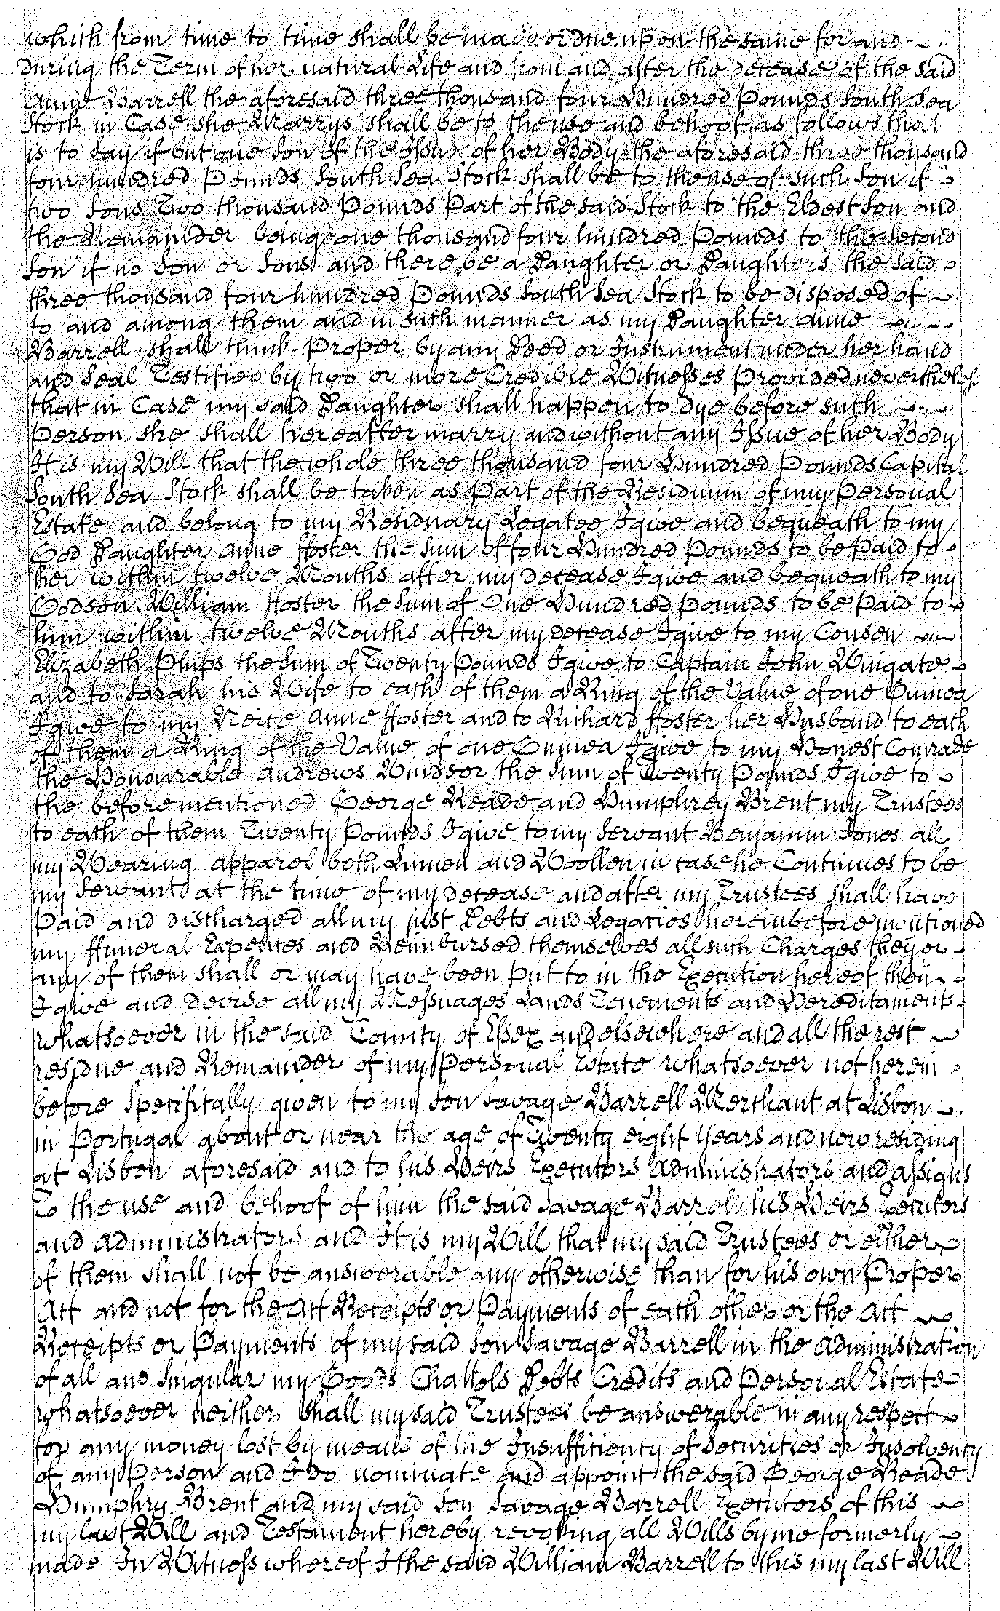 which from time to time shall be made or due upon the same for and
during the Term of her natural Life and from and after the decease of the said
Anne Barrell the aforesaid three thousand four Hundred Pounds South Sea
Stock in Case she Marrys shall be to the use and behoof as follows that
is to say if but one Son of the Issue of her Body the aforesaid three thousand
four hundred Pounds South Sea Stock shall be to the use of such Son if
two Sons Two thousand Pounds Part of the said Stock to the Eldest Son and
the Remainder being one thousand four hundred Pounds to the second
Son if no Son or Sons and there be a Daughter or Daughters the said
three thousand four hundred Pounds South Sea Stock to be disposed of
to and among them and in such manner as my Daughter Anne
Barrell shall think Proper by any Deed or Instrument under her hand
and Seal Testified by two or more Credible Witnesses Provided nevertheless
that in Case my said Daughter shall happen to dye before such
Person she shall hereafter marry and without any Issue of her Body
It is my Will that the whole three thousand four Hundred Pounds Capital
South Sea Stock shall be taken as Part of the Residuum of my Personal
Estate and belong to my Residuary Legatee I give and bequeath to my
God Daughter Anne ffoster the Sum of four Hundred Pounds to be Paid to
her within twelve Months after my decease I give and bequeath to my
Godson William ffoster the Sum of One Hundred Pounds to be Paid to
him within twelve Months after my decease I give to my Cousen
Elizabeth Phips the Sum of Twenty Pounds I give to Captain John Wingate
and to Sarah his Wife to each of them a Ring of the Value of one Guinea
I give to my Neice Anne ffoster and to Richard ffoster her Husband to each
of them a Ring of the Value of one Guinea I give to my Honest Comrade
the Honourable Andrews Windsor the Sum of Twenty Pounds I give to
the beforementioned George Reade and Humphrey Brent my Trustees
to each of them Twenty Pounds I give to my Servant Benjamin Jones all
my Wearing apparel both Linnen and Woollen in case he Continues to be
my Servant at the time of my decease and after my Trustees shall have
Paid and discharged all my just Debts and Legacies hereinbefore mentioned
my ffuneral Expences and Reimbursed themselves all such Charges they or
any of them shall or may have been put to in the Execution hereof then
I give and devise all my Messuages Lands Tenements and Hereditaments
whatsoever in the said County of Essex and elsewhere and all the rest
residue and Remainder of my Personal Estate whatsoever not herein
before Specifically given to my Son Savage Barrell Merchant at Lisbon
in Portugal about or near the age of Twenty eight Years and now residing
at Lisbon aforesaid and to his Heirs Executors Administrators and assigns
To the use and behoof of him the said Savage Barrell his Heirs Executors
and Administrators and It is my Will that my said Trustees or either
of them shall not be answerable any otherwise than for his own Proper
Act and not for the Act Receipts or Payments of each other or the Act
Receipts or Payments of my said Son Savage Barrell in the Administration
of all and Singular my Goods Chattels Debts Credits and Personal Estate
whatsoever neither shall my said Trustees be answerable in any respect
for any money lost by means of the Insufficiency of Securities or Insolvency
of any Person and I do nominate and appoint the said George Reade
Humphry Brent and my said Son Savage Barrell Executors of this
my last Will and Testament hereby revoking all Wills by me formerly
made In Witness whereof I the said William Barrell to this my last Will